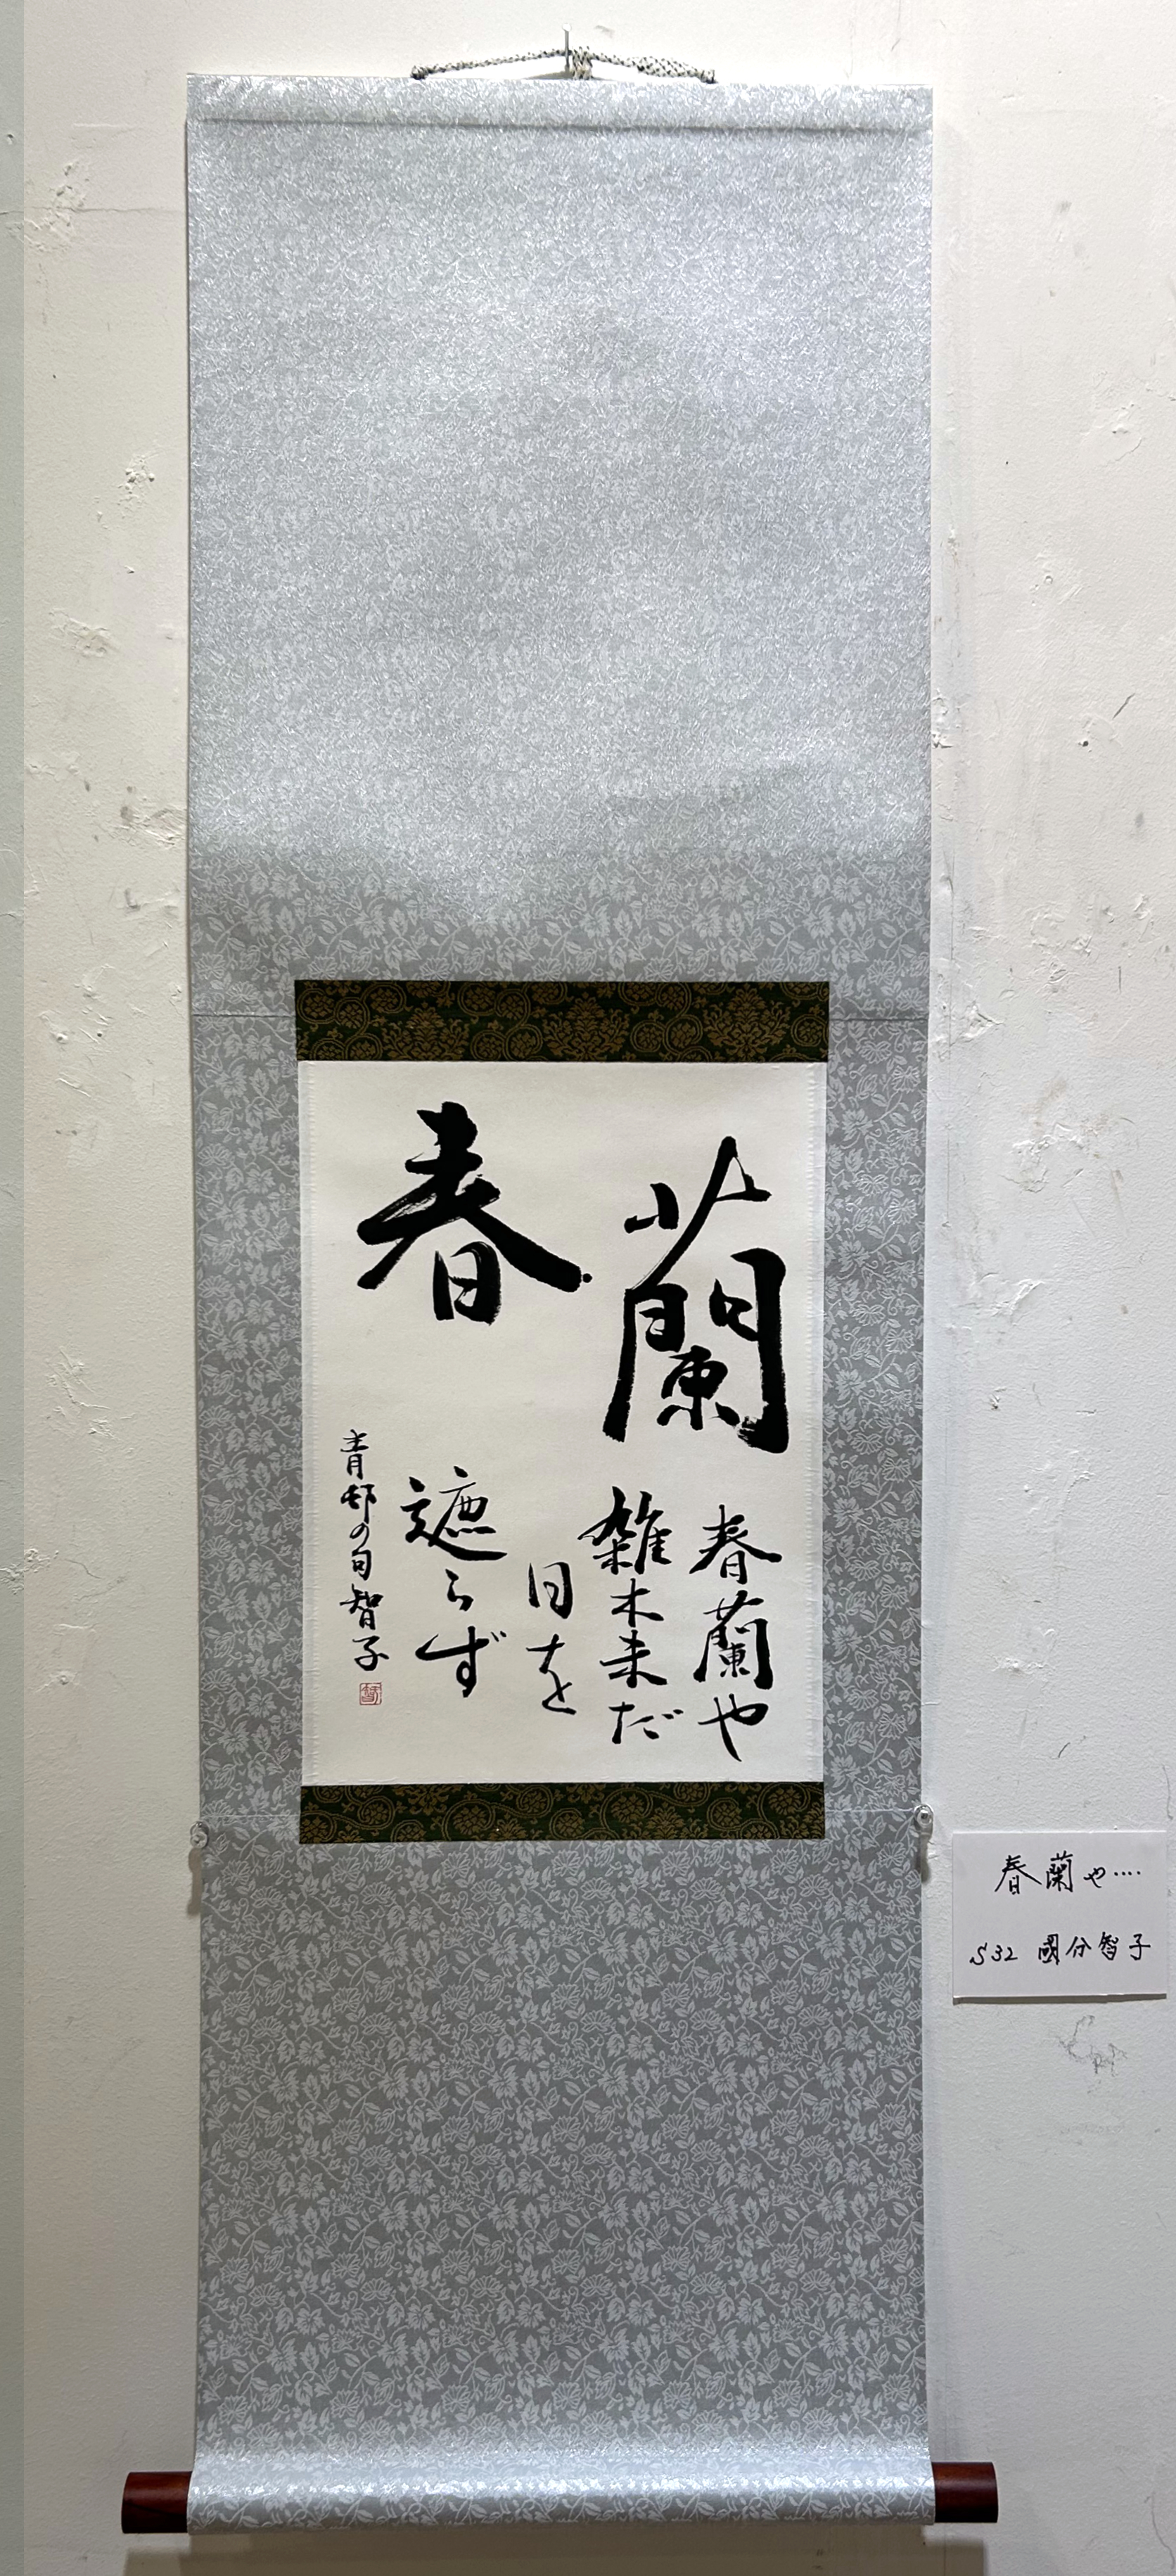 春蘭
春蘭や
雑木未だ
日を
遮らず
青邨の句 智子
春蘭や‥‥
S32 國分智子